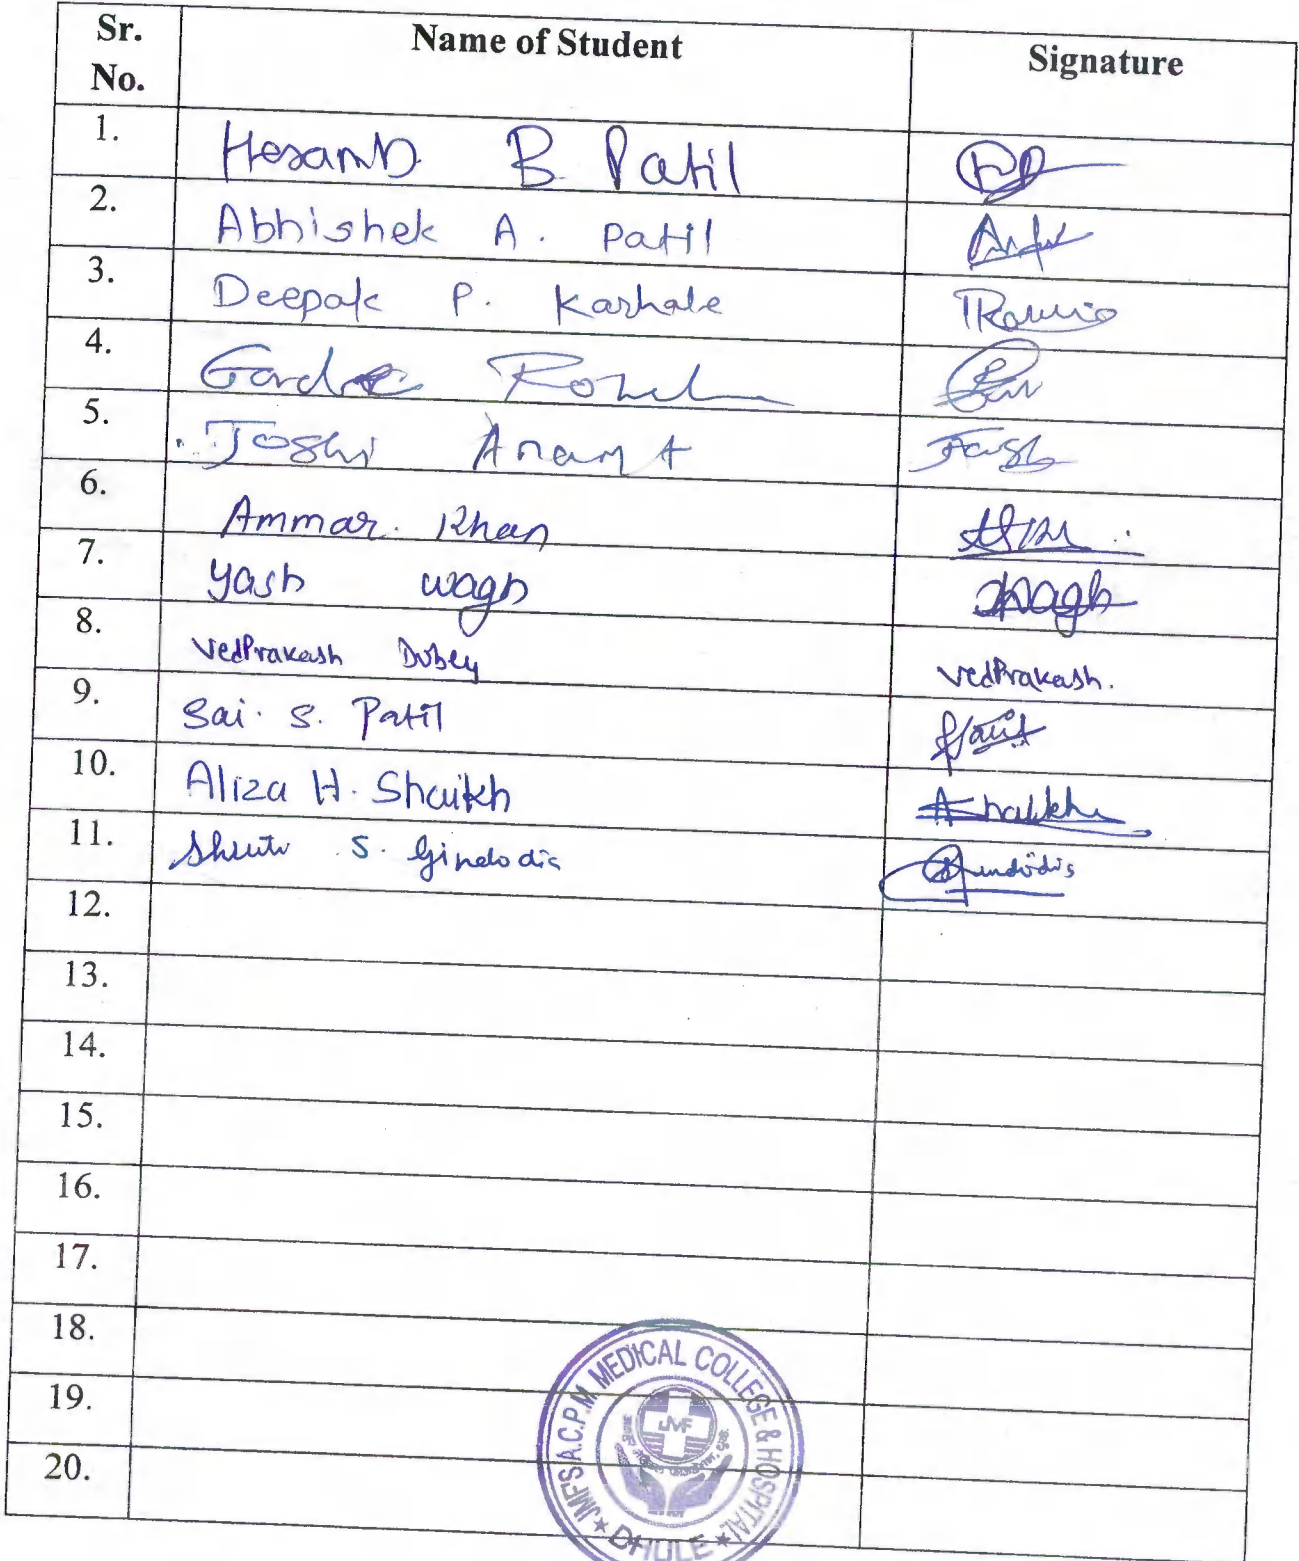 Sr. No. Name of Student Signature
1. Heramb B Patil
2. Abhishek A. Patil
3. Deepak P. Karhale
4.
5. Joshi Anant Joshi
6. Ammar Khan
7. Yash wagh wagh
8. VedPrakash Dubey VedPrakash.
9. Sai S. Patil
10. Aliza H. Shaikh AShaikh
11. Shruti S. Gindodia Gindodia
12.
13.
14.
15.
16.
17.
18.
19.
20.
JMF'S A.C.P.M. MEDICAL COLLEGE & HOSPITAL
JMF
★ DHULE ★